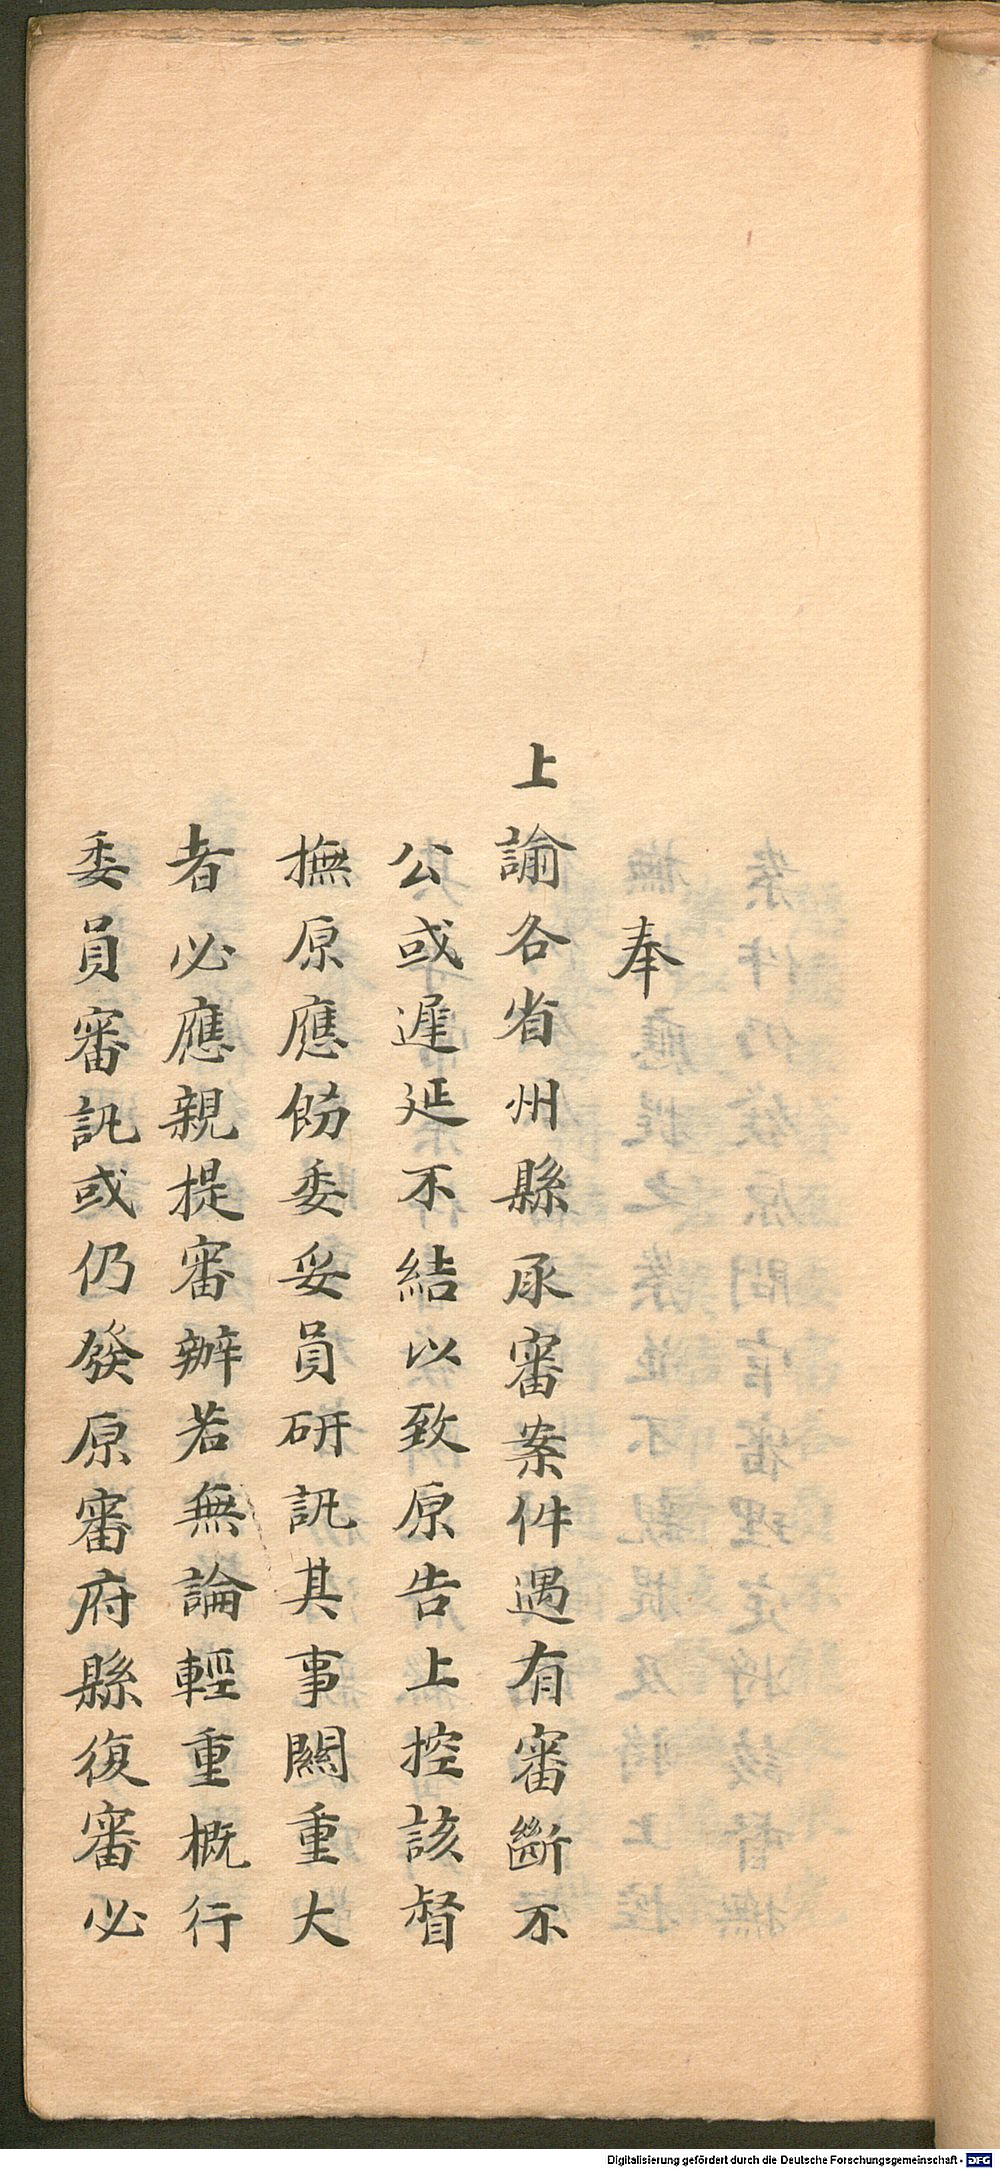 奉
上諭各省州縣承審案件遇有審斷不
公或遲延不結以致原告上控該督
撫原應飭委妥員研訊其事關重大
者必應親提審辦若無論輕重概行
委員審訊或仍發原審府縣復審必
Digitalisierung gefördert durch die Deutsche Forschungsgemeinschaft - DFG